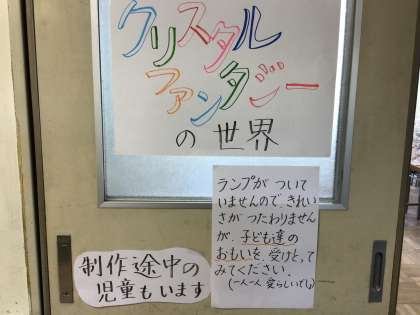 クリスタル
ファンタジー
の世界
ランプがついて
いませんので、きれい
さがつたわりません
が、子ども達の
おもいを、受けとって
みてください。
(一人一人 愛らしいです)
制作途中の
児童もいます